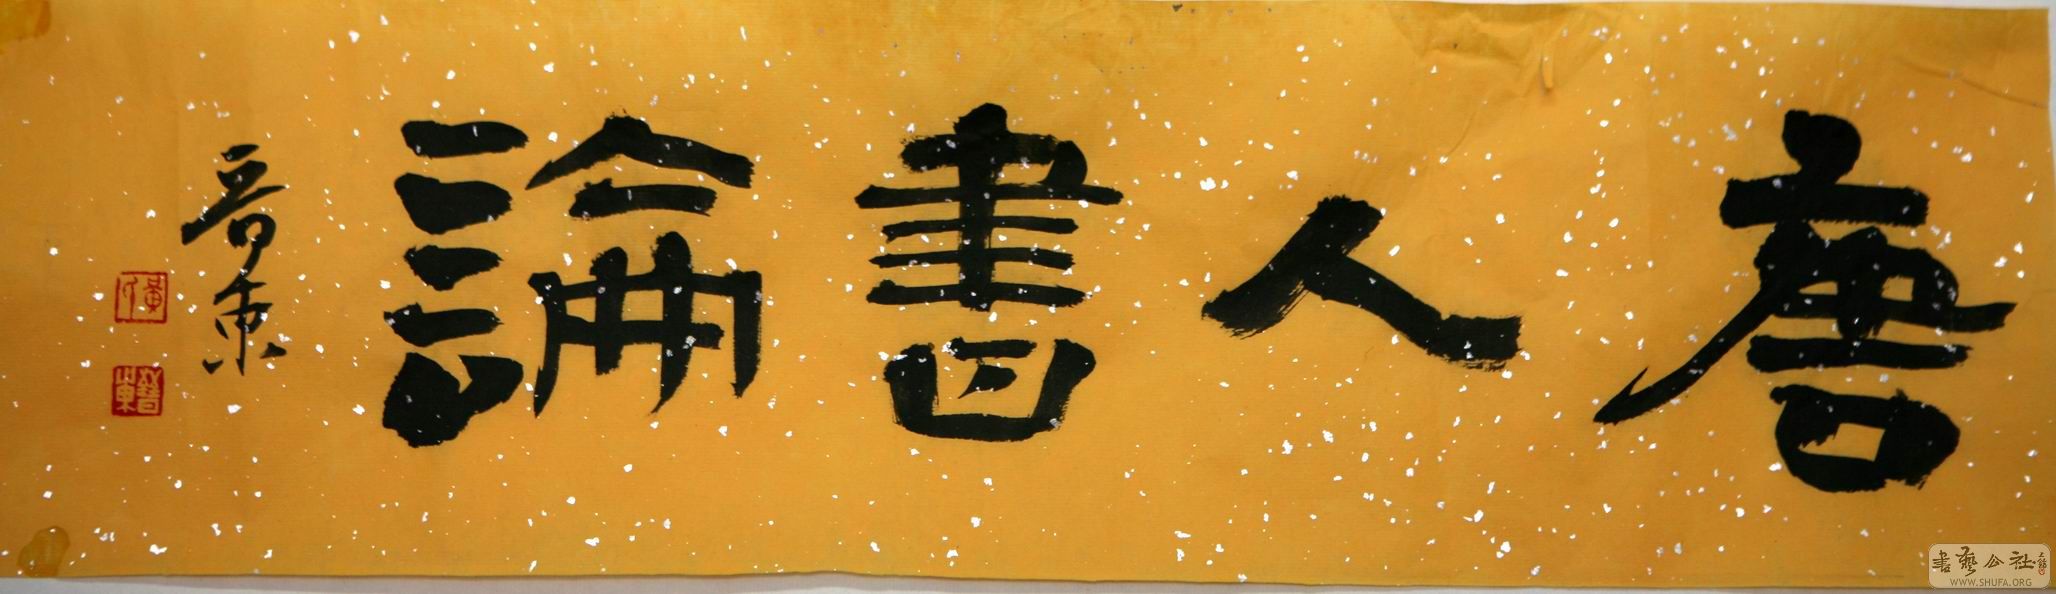 唐人書論
晉東
書藝公社
WWW.SHUFA.ORG